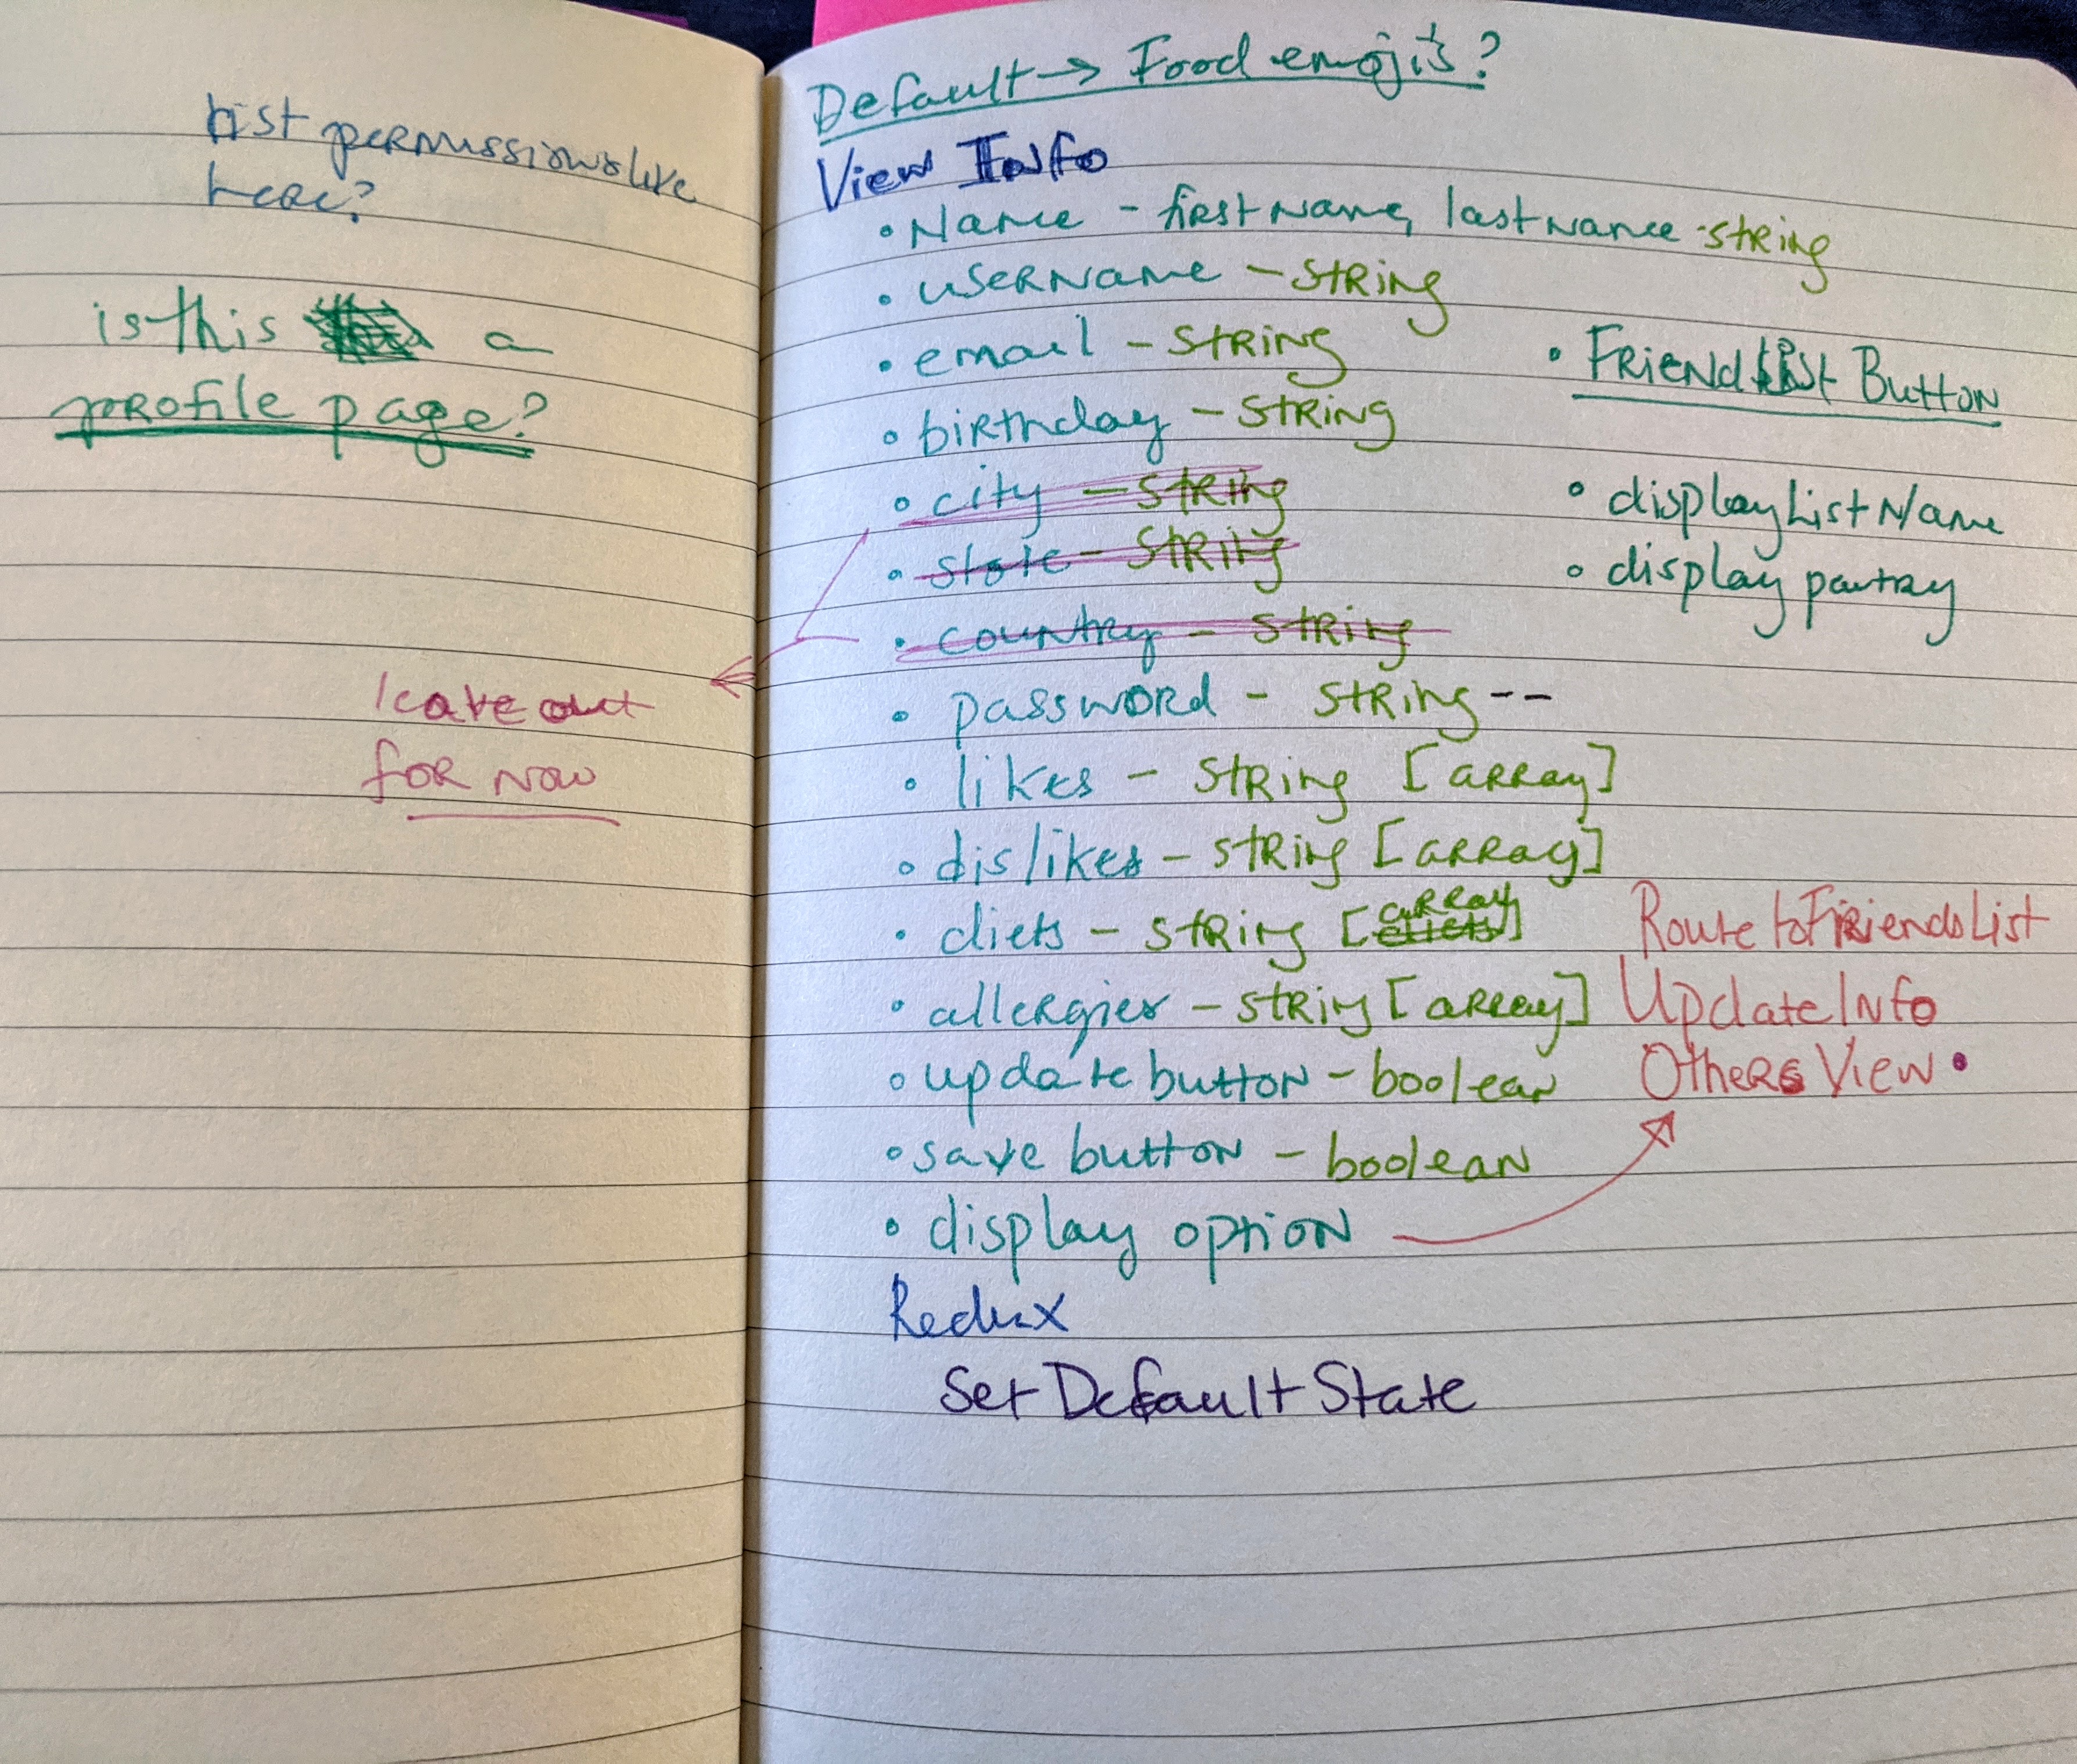 List permissions like
here?
is this a
profile page?
leave out
for now
Default → Food emojis?
View Info
• Name - first name, last name - string
• username - string
• email - string
• birthday - string
• city - string
• state - string
• country - string
• password - string --
• likes - string [array]
• dislikes - string [array]
• diets - string [array]
• allergies - string [array]
• update button - boolean
• save button - boolean
• display option
Redux
Set Default State
• Friend List Button
• display List Name
• display pantry
Route to Friends List
Update Info
Others View •